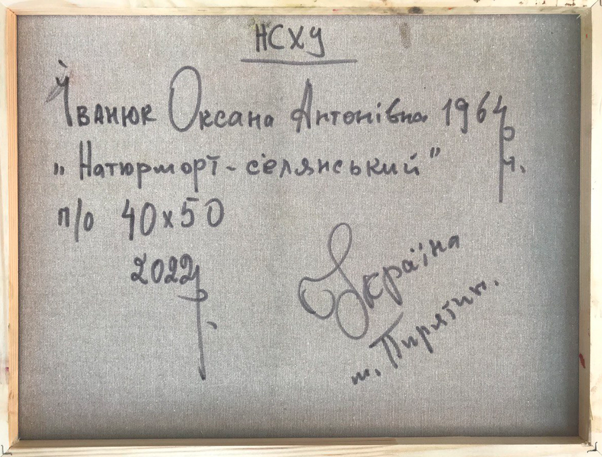 НСХУ
Іванюк Оксана Антонівна 1964 р.н.
„Натюрморт-селянський"
п/о 40х50
2022р.
Україна
м. Пирятин.